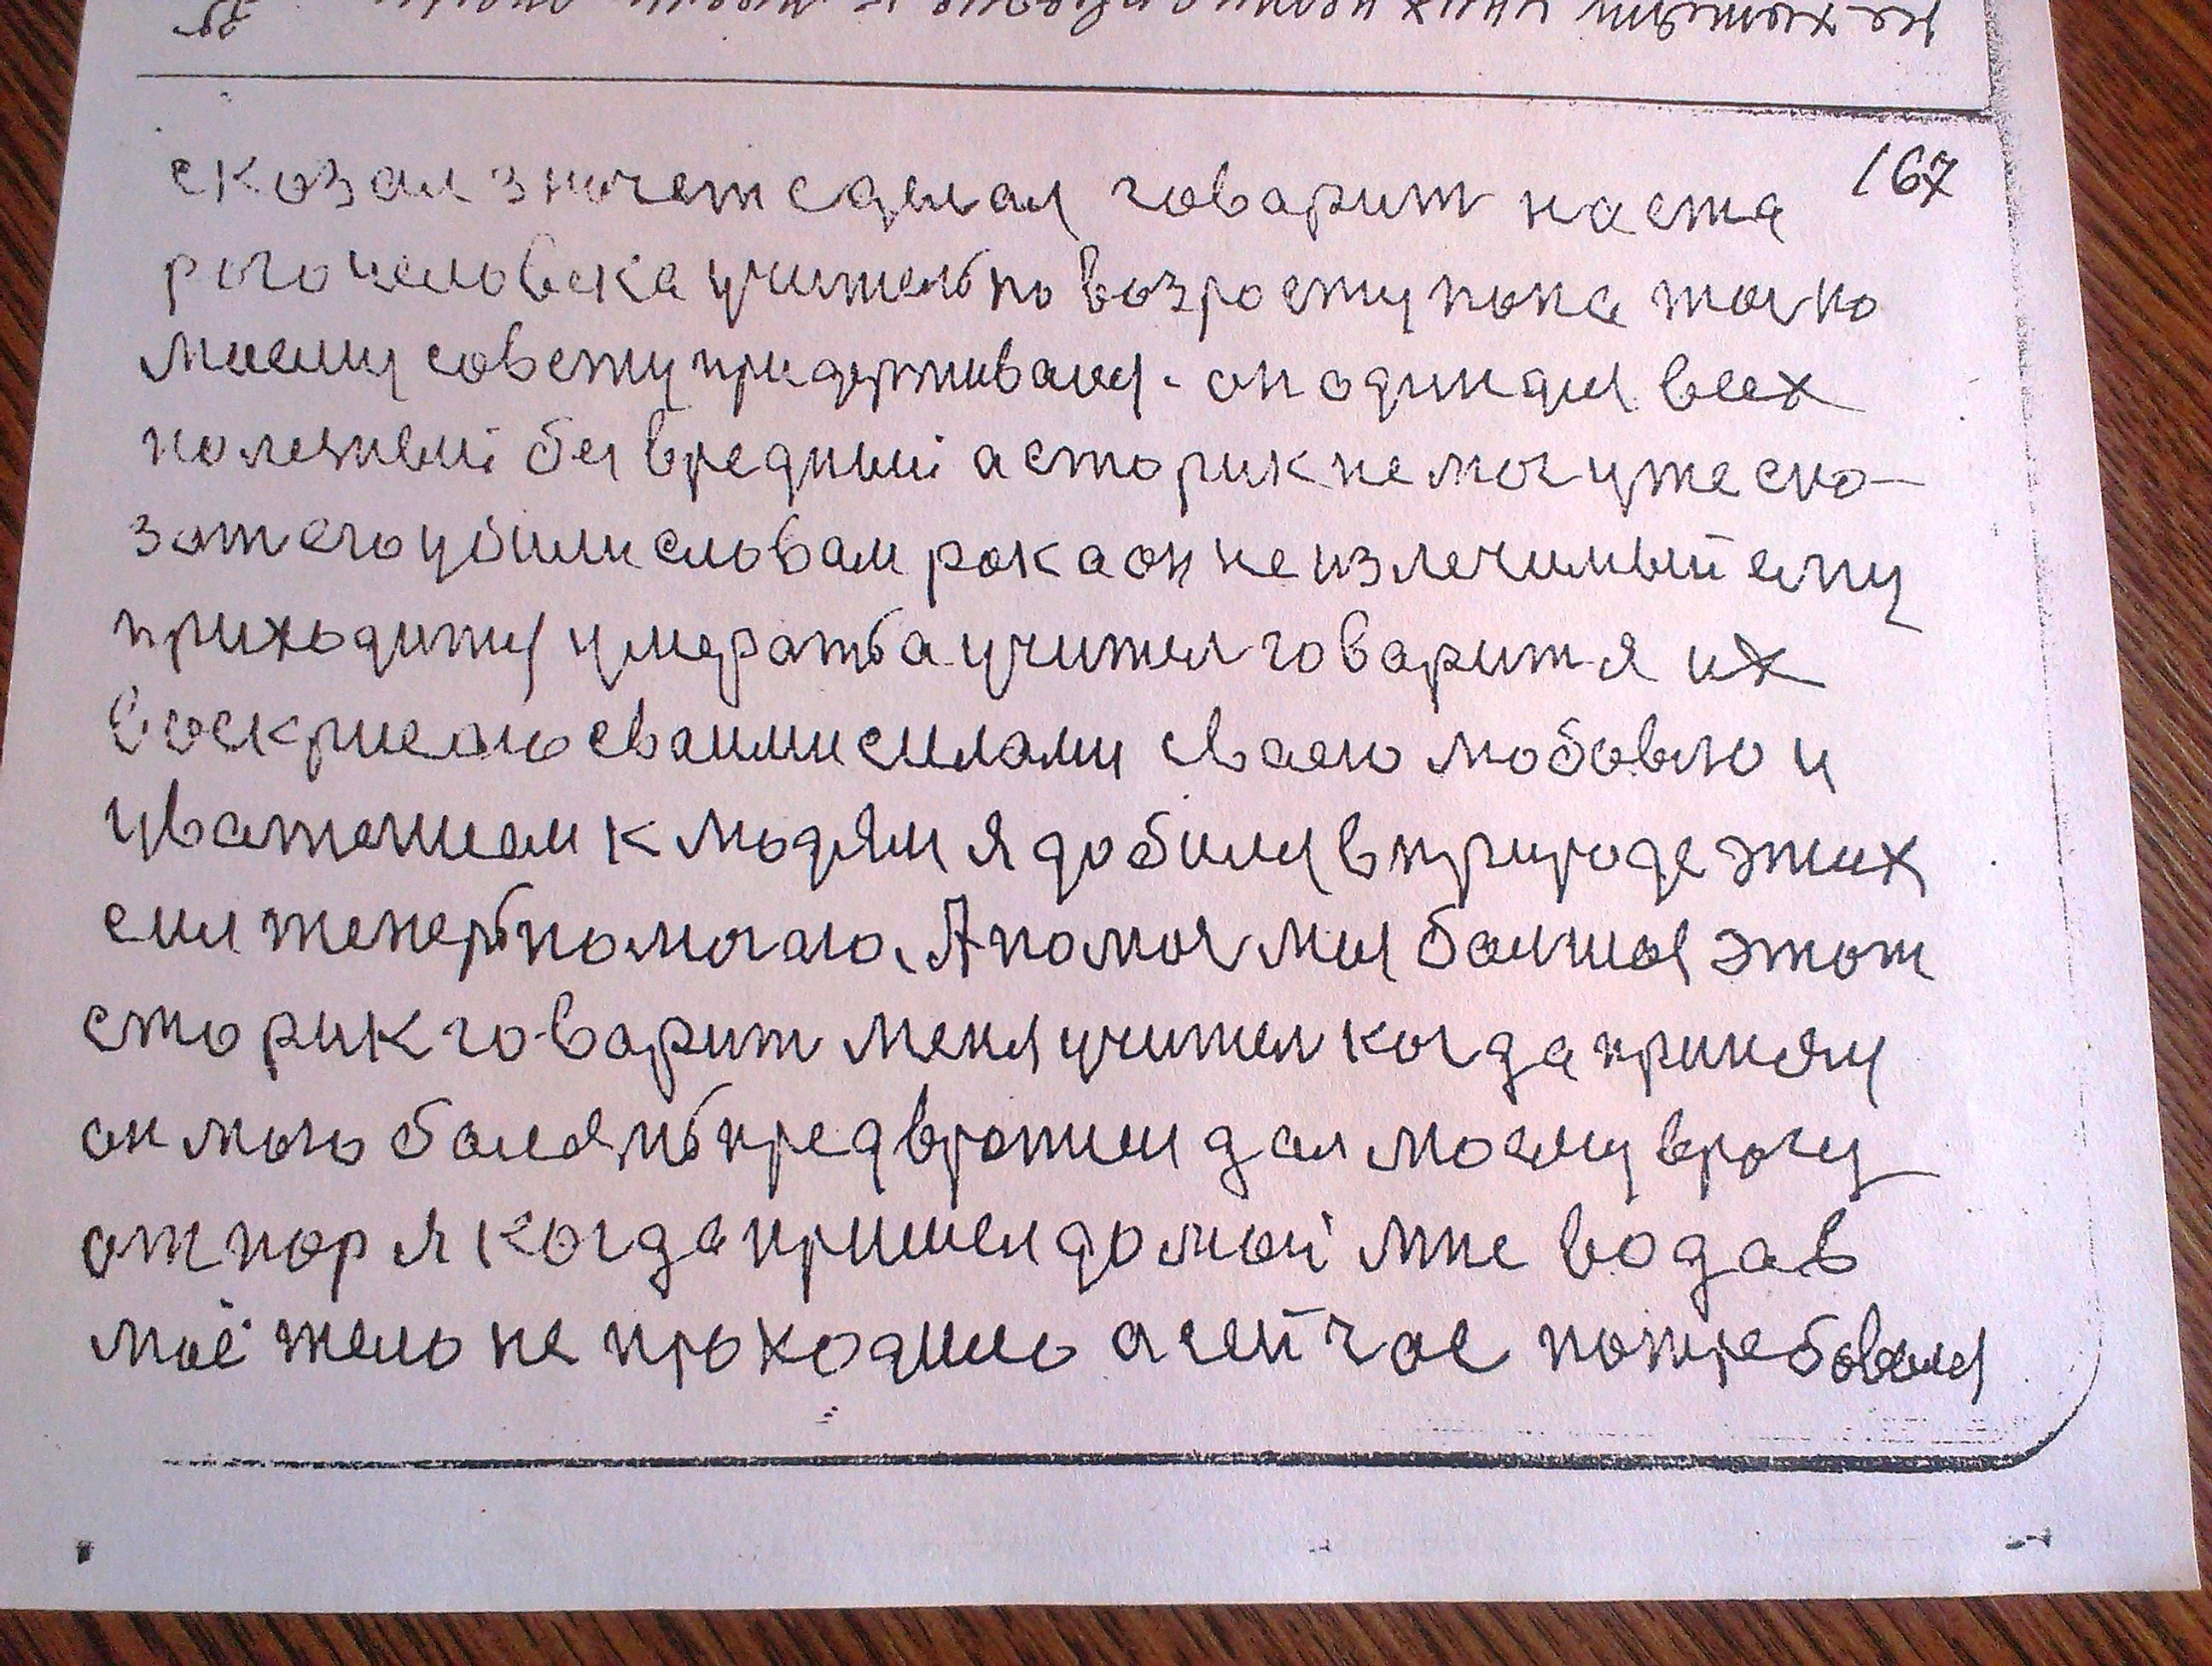 167
сказал значет сделал говарит на ста
рого человека учитель по возросту пока толко
моему совету придерживался. он один для всех
полезный безвредный а сторик не мог уже ска-
зат его убили словам рока он не излечимый ему
приходится умерать а учител говарит я их
воскрисаю сваими силами сваею любовью и
уважением к людям я добился в природе этих
сил теперь помогаю. А помог мня болшое этот
сторик говарит меня учител когда принял
он мою болезнь предвротил дал моему врогу
отпор я когда пришел домой мне вода в
моё тело не проходило а сейчас потребовался